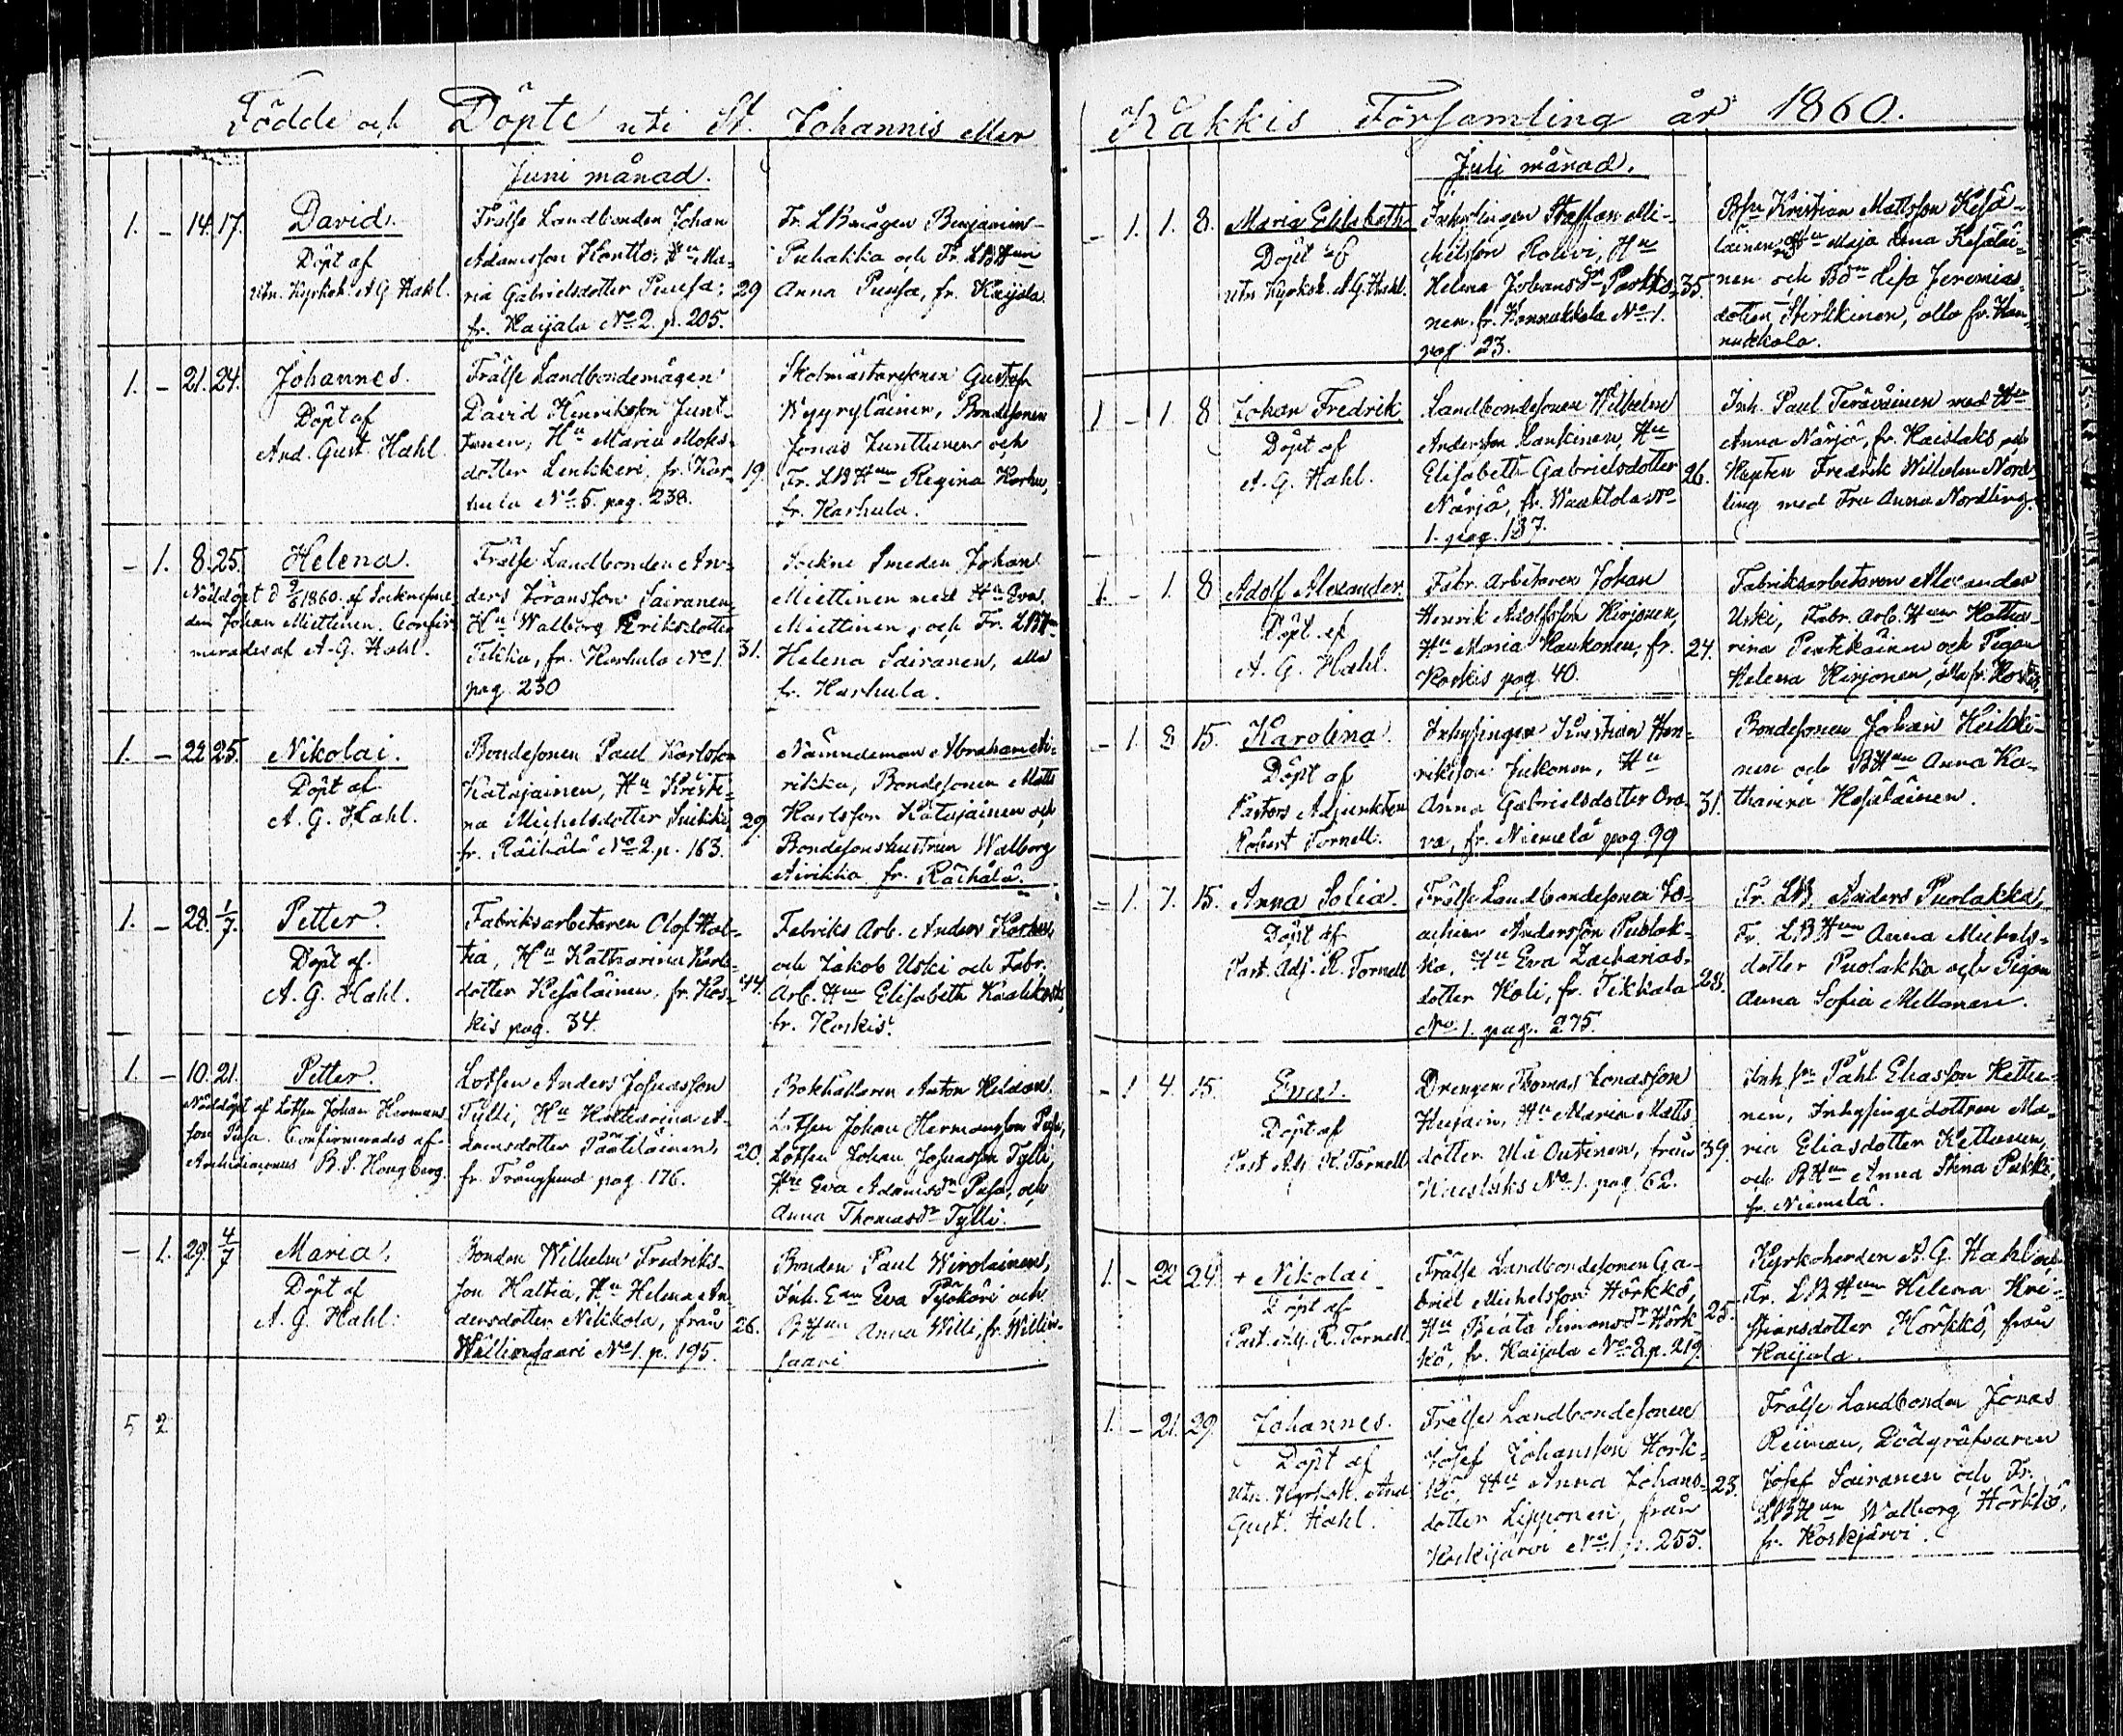 Födde och Döpte uti St. Johannis eller
Juni månad.
1. - 14. 17. David.
Döpt af
utn. Kyrkoh. A G Hahl.
Frälse Landbonden Johan
Adamsson Kontto, Hu Ma-
ria Gabrielsdotter Puusa;
fr. Kaijala No 2. p. 205.
29
Fr. LBmågen Benjamin
Puhakka och Fr. LBHun
Anna Puusa, fr. Kaijala
1. - 21. 24. Johannes.
Döpt af
And. Gust. Hahl
Frälse Landbondemågen
David Henriksson Junt-
tunen, Hu Maria
dotter fr. Kar-
hula No 5. pag. 238.
19.
Skolmästaresonen Gustaf
Bondesonen
Jonas Junttunen och
Fr. LBHun Regina Karhu,
fr. Karhula.
- 1. 8. 25. Helena.
Nöddöpt d 9/6 1860. af Socknesme-
den Johan Miettinen. Confir-
merades af A. G. Hahl.
Frälse Landbonden An-
ders Göransson Sairanen,
Hu Walborg Eriksdotter
fr. Karhula No 1.
pag. 230
31.
Sockne Smeden Johan
Miettinen med Hu Eva
Miettinen, och Fr. LBHun
Helena Sairanen, alla
fr. Karhula.
1. - 22 25. Nikolai.
Döpt af
A. G. Hahl.
Bondesonen Paul Karlsson
Katajainen, Hu Kristi-
na Michelsdotter
fr. Räihälä No 2. p. 163.
29
Nämndeman Abraham Ai-
rikka, Bondesonen Matts
Karlsson Katajainen och
Bondesonshustrun Walborg
Airikka fr. Räihälä.
1. - 28. 1/7. Petter.
Döpt af
A. G. Hahl.
Fabriksarbetaren Olof Hal-
tia, Hu Katharina Karls-
dotter Kesäläinen, fr. Kos-
kis pag. 34.
44.
Fabriks Arb. Anders
och Jakob Uski och Fabr.
Arb. Hun Elisabeth
fr. Koskis.
1. - 10. 21. Petter.
Nöddöpt af Lotsen Johan Hermans-
son Pusa. Confirmerades af
Archidiaconus B. S. Hougberg.
Lotsen Anders Josuasson
Tylli, Hu Katharina A-
damsdotter Päätiläinen,
fr. Trångsund pag. 176.
20.
Bokhållaren Anton
Lotsen Johan Hermansson Pusa,
Lotsen Johan Josuasson Tylli,
Hu Eva Adamsdr Pusa, och
Anna Thomasdr Tylli.
- 1. 29. 4/7 Maria.
Döpt af
A. G. Hahl.
Bonden Wilhelm Fredriks-
son Haltia, Hu Helena An-
dersdotter Nilikola, från
No 1. p. 195.
26.
Bonden Paul Wirolainen,
Inh. Eva och
BHun Anna Willi, fr. Willin-
saari
5 2
Kakkis Församling år 1860.
Juli månad.
- 1. 1. 8. Maria Elisabeth
Döpt af
utn Kyrkoh. A G. Hahl.
Inhysingen Staffan Mi-
chelsson Hu
Helena Johansdr
nen. fr. Kannukkala No 1.
pag 23.
35.
Bsn Kristian Mattsson Kesä-
läinen, Hu Maja Lena Kesäläi-
nen och Bdn Lisa Jeremias-
dotter Hirkkinen, alla fr. Kan-
nukkala.
1 - 1. 8 Johan Fredrik
Döpt af
A. G. Hahl.
Landbondesonen Wilhelm
Andersson Lankinen, Hu
Elisabeth Gabrielsdotter
Närjä, fr. No
1. pag. 137.
26.
Inh. Paul Teräväinen med Hu
Anna Närjä, fr. Kaislaks och
Fredrik Wilhelm Nord-
ling med Fru Anna Nordling.
1. - 1. 8 Adolf Alexander.
Döpt af
A. G. Hahl.
Fabr. arbetaren Johan
Henrik Adolfsson Kirjonen,
Hu Maria Kaukonen, fr.
Koskis pag. 40.
24.
Fabriksarbetaren Alexander
Uski, Fabr. Arb. Hun Katha-
rina och Pigan
Helena Kirjonen, alla fr. Koskis
- 1. 8 15. Karolina.
Döpt af
Pastors Adjunkten
Robert Tornell.
Inhysingen Kristian Hen-
riksson Jukonen, Hu
Anna Gabrielsdotter Ora-
va, fr. Niemelä pag. 99
31.
Bondesonen Johan Heikki-
nen och BHun Anna Ka-
tharina Kesäläinen.
- 1. 7. 15. Anna Sofia.
Döpt af
Past. Adj. R. Tornell
Frälse Landbondesonen Jo-
achim Andersson Puolak-
ka, Hu Eva Zacharias-
dotter Koli, fr. Tikkala
No 1. pag. 275.
28.
Fr. LB. Anders Puolakka,
Fr. LBHun Anna Michels-
dotter Puolakka och Pigan
Anna Sofia Mellanen.
- 1 4. 15. Eva.
Döpt af
Past Adj R. Tornell
Drengen Thomas Jonasson
Hu Maria Matts
dotter från
Kaislaks No 1. pag. 62.
39.
Inh. sn Påhl Eliasson Kettu-
nen, Inhysingedottren Ma-
ria Eliasdotter Kettunen,
och BHun Anna Stina
fr. Niemelä.
1. - 22 24. + Nikolai
Döpt af
Past. Adj. R. Tornell.
Frälse Landbondesonen Ga-
briel Michelsson Hörkkö,
Hu Beata Simonsdr Hörk-
kö, fr. Kaijala No 2. p. 219.
25.
Kyrkoherden A. G. Hahl och
Fr. LBHun Helena Kri-
stiansdotter Hörkkö, från
Kaijala.
1. - 21. 29. Johannes.
Döpt af
utn. Kyrkoh. And
Gust. Hahl.
Frälse Landbondesonen
Josef Johansson Hörk-
kö, Hu Anna Johans-
dotter Lipponen, från
Koskijärvi No 1 p. 255.
23.
Frälse Landbonden Jonas
Reiman, Dödgräfvaren
Josef Sairanen och Fr.
LBHun Walborg Hörkkö,
fr. Koskijärvi.